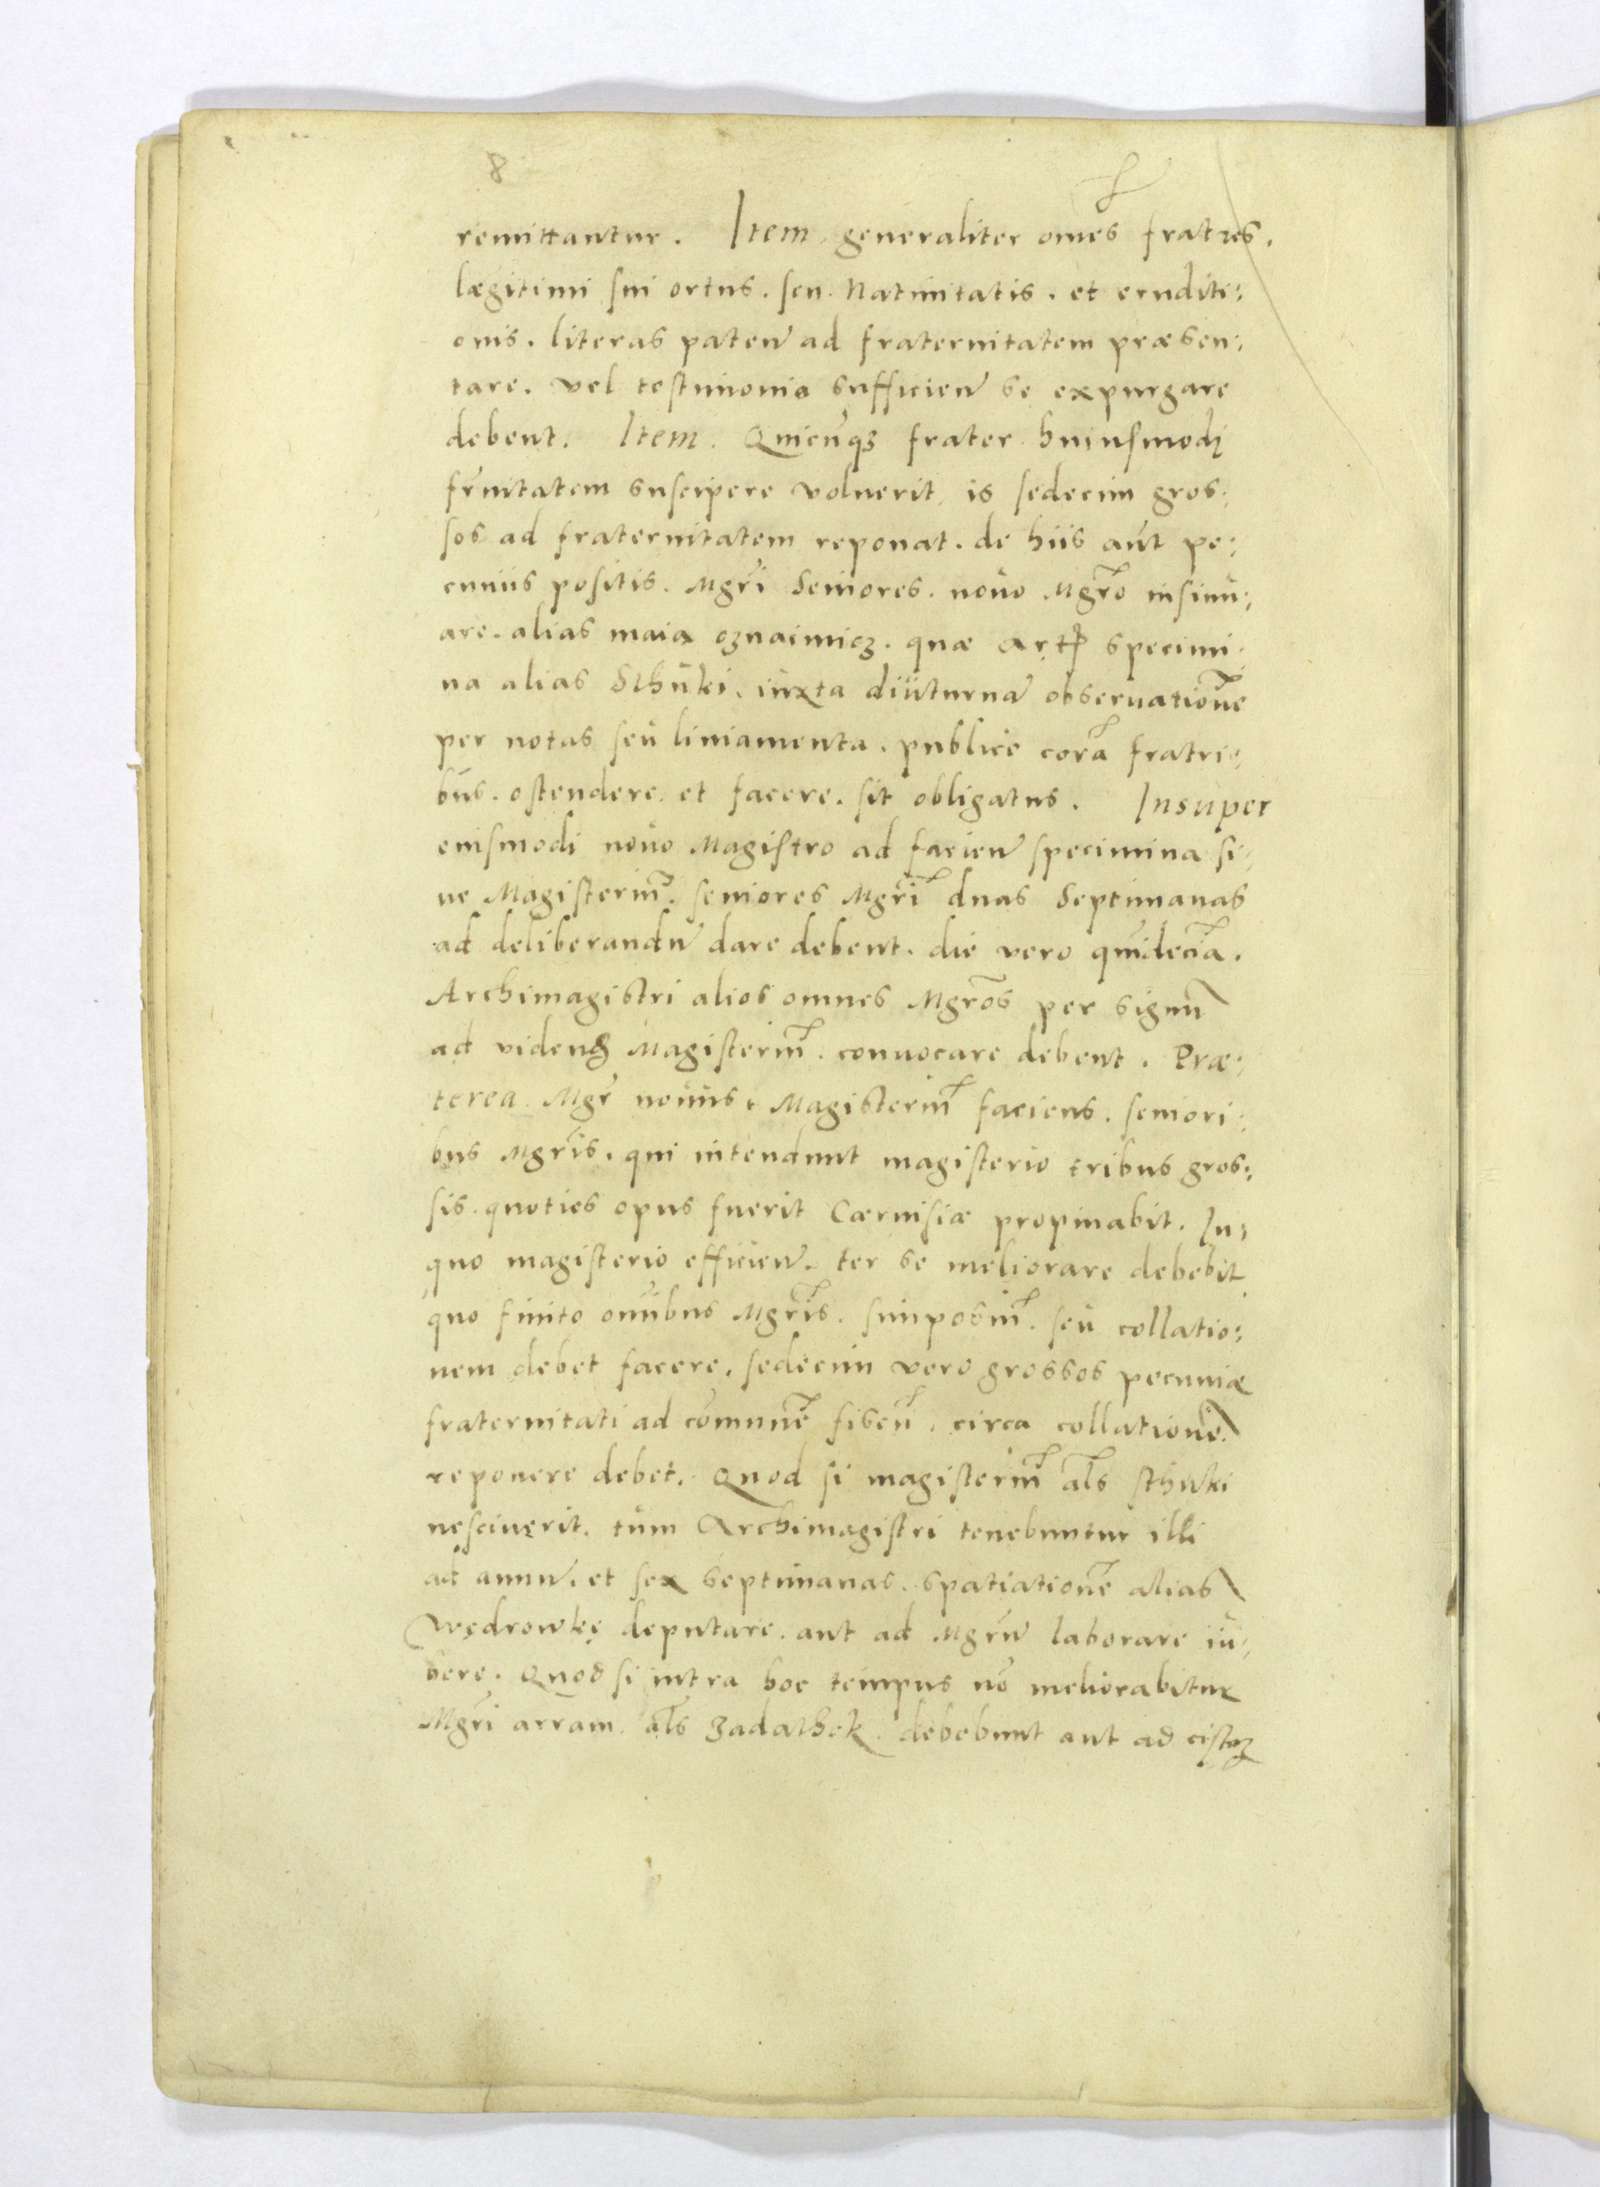 8
remittantur. Item, generaliter om̄es fratres.
lægitimi sui ortus. seu. Natiuitatis. et eruditi:
onis. literas paten̄ ad fraternitatem præsen:
tare. vel testimonio sufficien̄ se expurgare
debent. Item. Quicūqꝫ frater huiusmodi
fr̄nitatem suscipere voluerit, is sedecim gros:
sos ad fraternitatem reponat. de hiis aūt pe:
cuniis positis. Mgr̄i Seniores. nouo Mgr̄o insinu:
are. alias maia oznaimicz. quæ Artꝭ specimi:
na alias Sthuki. iuxta diuturnā obseruationē
per notas seu liniamenta. publice corā fratri:
bus. ostendere. et facere. sit obligatus. Insuper
eiusmodi nouo Magistro ad facien̄ specimina si:
ue Magisteriū. seniores Mgr̄i duas Septimanas
ad deliberandū dare debent. die vero quīdecīa.
Archimagistri alios omnes Mgr̄os per signū
ad videnđ Magisteriū. conuocare debent. Præ:
terea Mgr̄ nouus. Magisteriū faciens. seniori:
bus Mgr̄is. qui intendunt magisterio tribus gros:
sis. quoties opus fuerit Cæruisiæ propinabit. In
quo magisterio efficien̄. ter se meliorare debebit
quo finito om̄ibus Mgr̄is. simposiū. seu collatio:
nem debet facere. sedecim vero grossos pecuniæ
fraternitati ad com̄unē fiscū. circa collationē.
reponere debet. Quod si magisteriū al̄s sthuki
nesciuerit. tum Archimagistri tenebuntur illi
ad annū. et sex septimanas. spatiationē alias
Wędrowkę deputare. aut ad Mgr̄ū laborare iu:
bere. Quod si intra hoc tempus nō meliorabitur
Mgr̄i arram. al̄s zadathek. debebunt aut ad cistaꝫ